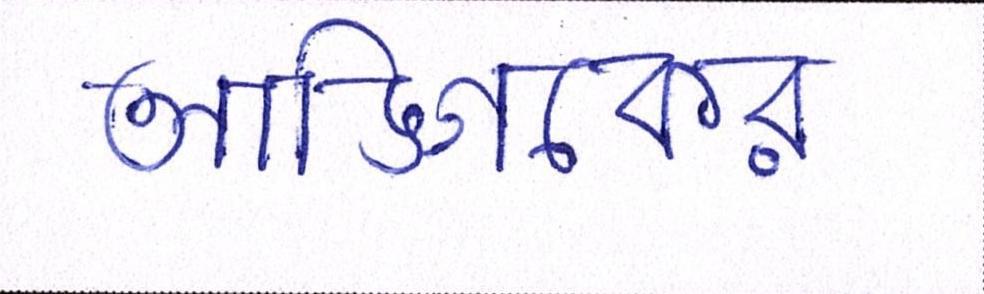 আঙ্গিকের